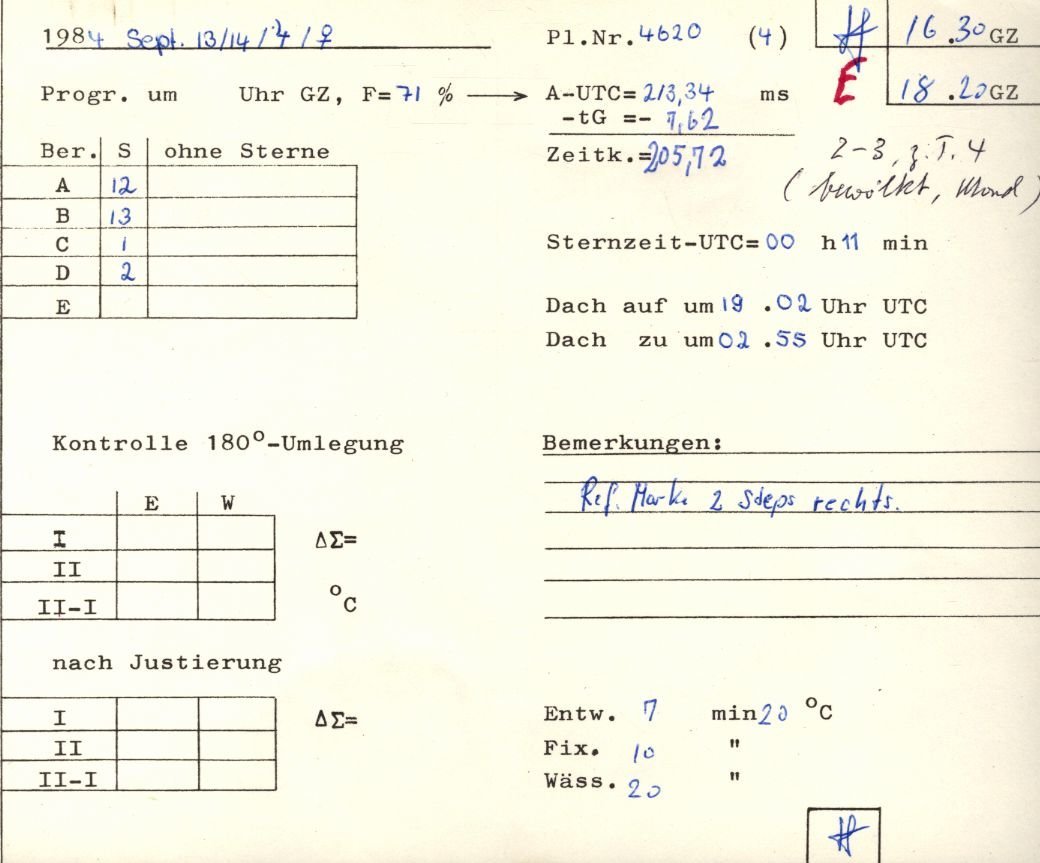 1984 Sept. 13/14 / ♃ / ♀
Pl.Nr. 4620 (4)
16.30 GZ
E
18.20 GZ
Progr. um Uhr GZ, F= 71 % → A-UTC= 213,34 ms
-tG =- 7,62
Zeitk.= 205,72
2-3, z.T. 4
(bewölkt, Mond)
Ber. S ohne Sterne
A 12
B 13
C 1
D 2
E
Sternzeit-UTC= 00 h 11 min
Dach auf um 19 .02 Uhr UTC
Dach zu um 02 .55 Uhr UTC
Kontrolle 180°-Umlegung
E W
I ΔΣ=
II
II-I °C
Bemerkungen:
Ref. Marke 2 Steps rechts.
nach Justierung
I ΔΣ=
II
II-I
Entw. 7 min 20 °C
Fix. 10 "
Wäss. 20 "